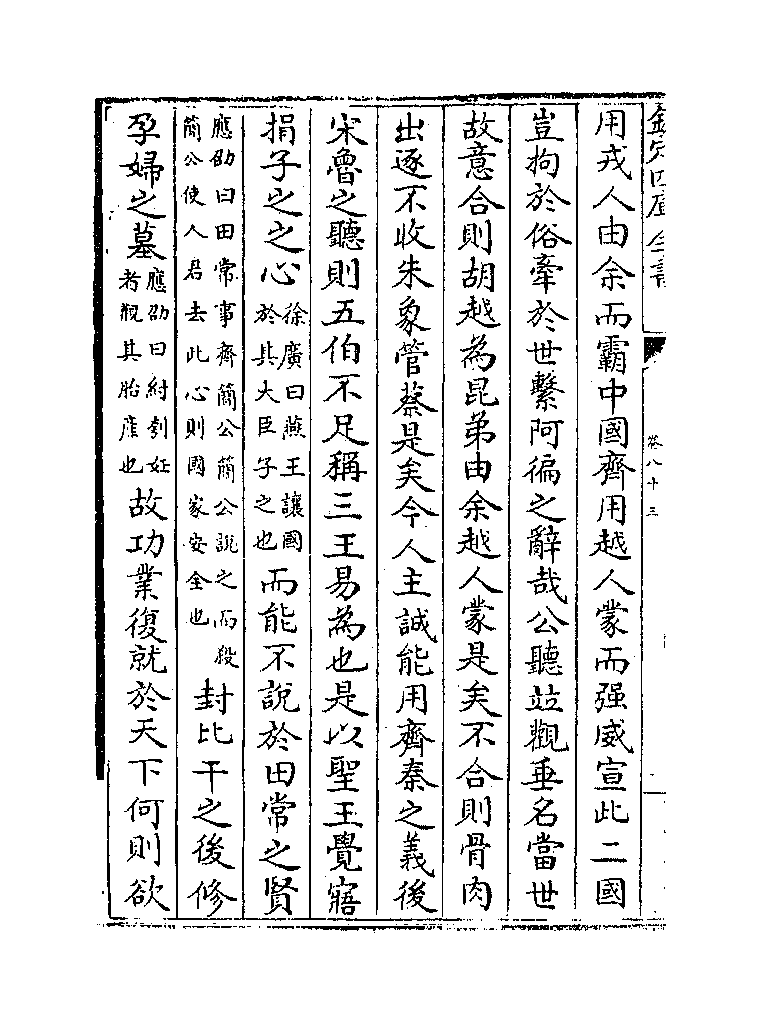 欽定四庫全書
卷八十三
用戎人由余而霸中國齊用越人蒙而强威宣此二國
豈拘於俗牽於世繫阿偏之辭哉公聽竝觀垂名當世
故意合則胡越為昆弟由余越人蒙是矣不合則骨肉
出逐不收朱象管蔡是矣今人主誠能用齊秦之義後
宋魯之聽則五伯不足稱三王易為也是以聖王覺寤
捐子之之心徐廣曰燕王讓國於其大臣子之也而能不說於田常之賢
應劭曰田常事齊簡公簡公說之而殺簡公使人君去此心則國家安全也封比干之後修
孕婦之墓應劭曰紂刳妊者觀其胎産也故功業復就於天下何則欲